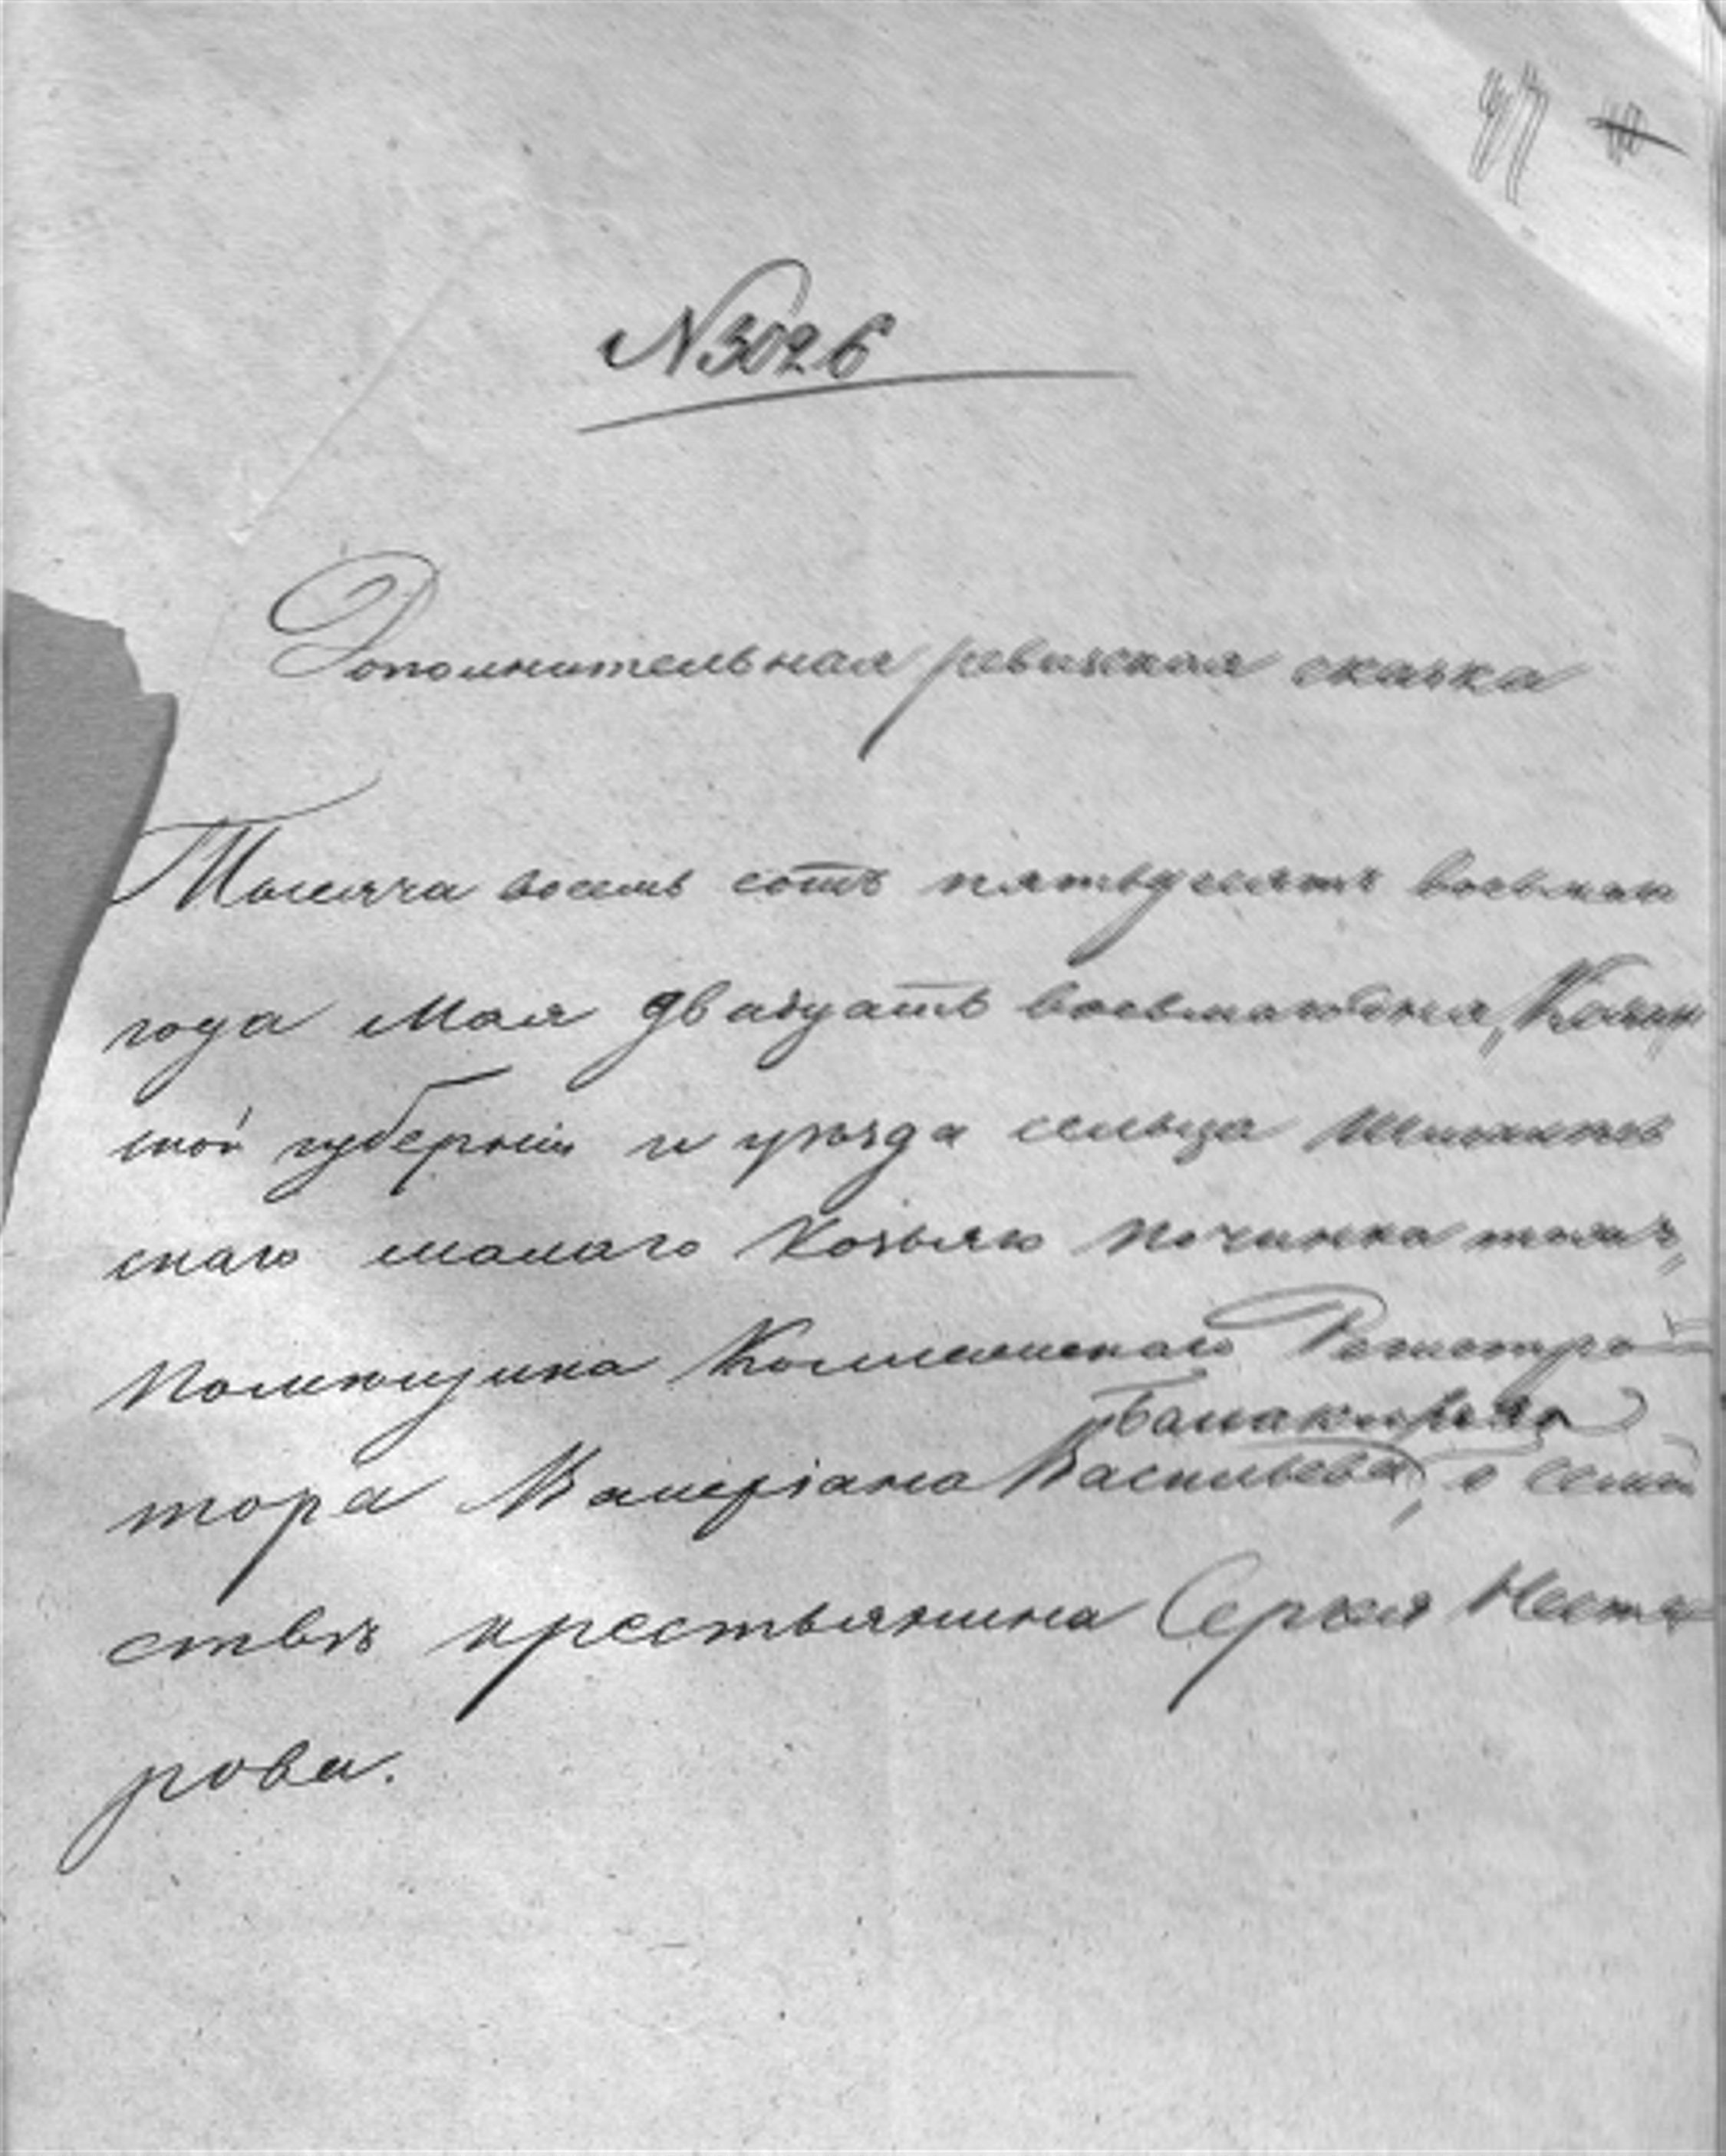 47
N 3026
Дополнительная ревизская сказка
Тысяча восемь сотъ пятьдесятъ восьмаго
года Мая двадцать восьмаго дня, Казан
ской губерніи и уѣзда сельца
скаго малаго Козьяго починка тожъ,
помѣщика Коллежскаго Регистра
Балакирева
тора Валеріана Васильева, о семей
ствѣ крестьянина Сергѣя Несте
рова.